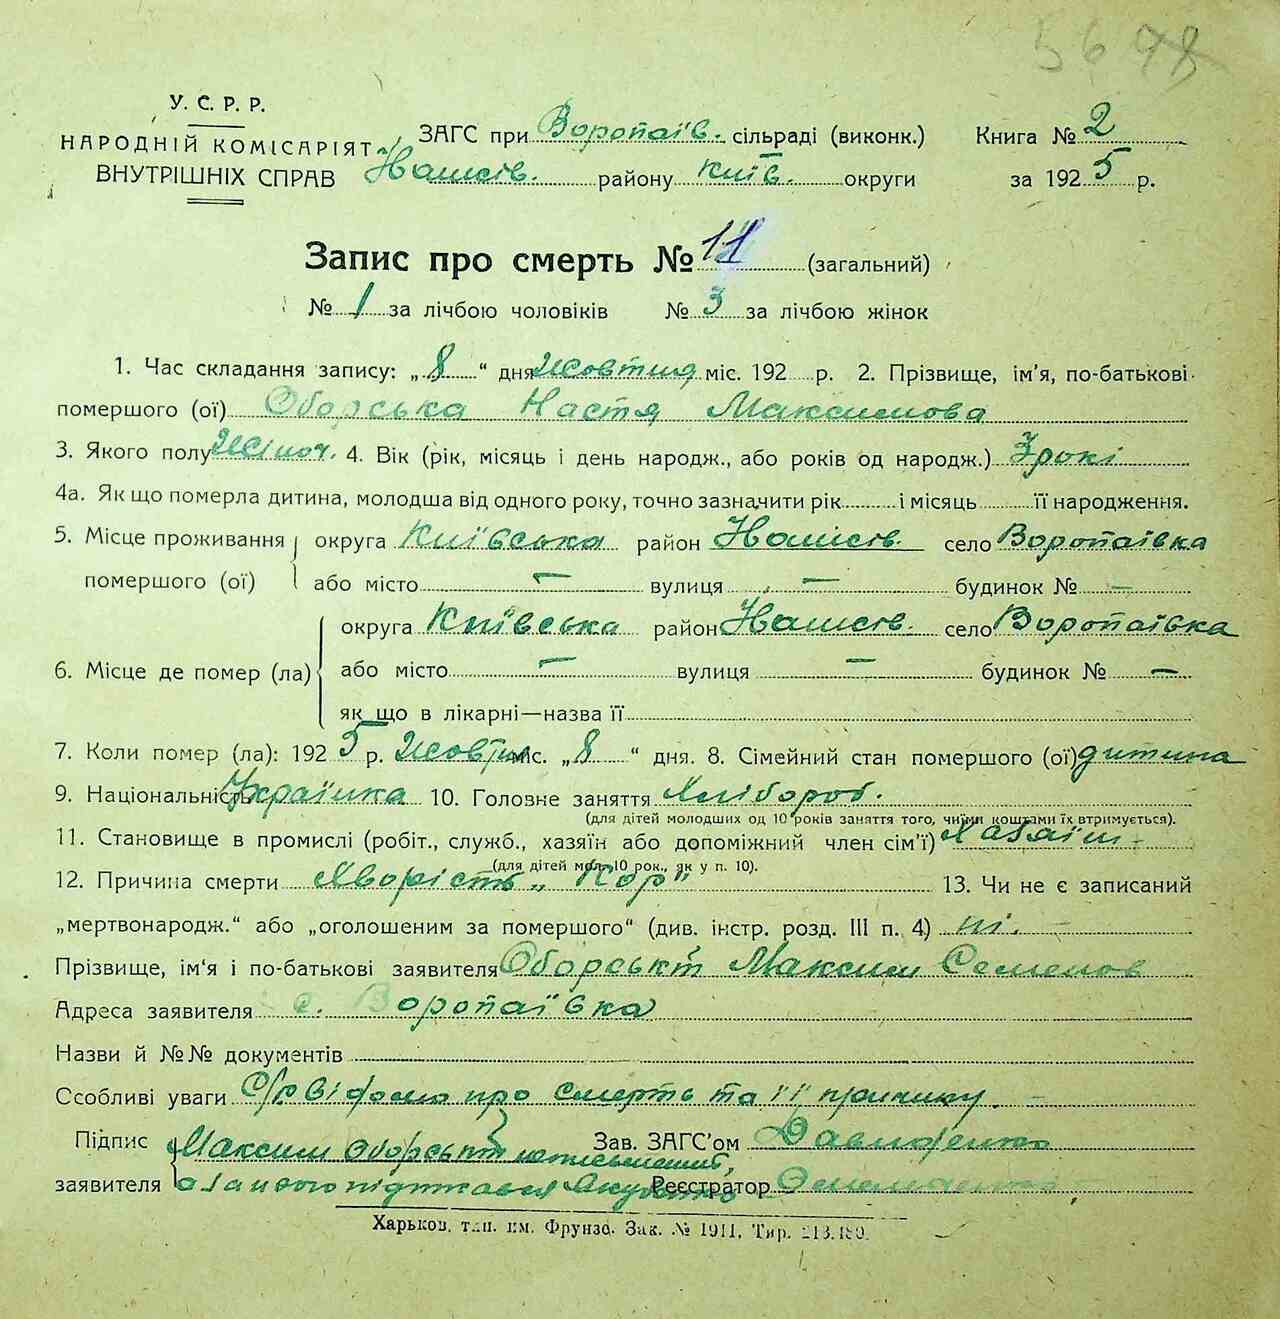 5698
У. С. Р. Р.
НАРОДНІЙ КОМІСАРІЯТ
ВНУТРІШНІХ СПРАВ
ЗАГС при Воропаїв. сільраді (виконк.)
районy Київ. округи
Книга № 2
за 1925 р.
Запис про смерть № 11 (загальний)
№ 1 за лічбою чоловіків № 3 за лічбою жінок
1. Час складання запису: „ 8 “ дня Жовтня міс. 192 р. 2. Прізвище, ім'я, по-батькові
помершого (ої) Оборська Настя Максимова
3. Якого полу Жіноч. 4. Вік (рік, місяць і день народж., або років од народж.) 3 рокі
4а. Як що померла дитина, молодша від одного року, точно зазначити рік і місяць її народження.
5. Місце проживання округа Київська район село Воропаївка
помершого (ої) або місто — вулиця — будинок № —
6. Місце де помер (ла)
округа Київська район село Воропаївка
або місто — вулиця — будинок № —
як що в лікарні—назва її
7. Коли помер (ла): 1925 р. Жовтня міс. „ 8 “ дня. 8. Сімейний стан помершого (ої) дитина
9. Національність Українка 10. Головне заняття Хлібороб.
(для дітей молодших од 10 років заняття того, чиїми коштами їх втримується).
11. Становище в промислі (робіт., служб., хазяїн або допоміжний член сім'ї) Хазаїн
(для дітей мол. 10 рок., як у п. 10).
12. Причина смерти Хворість „Кор“ 13. Чи не є записаний
„мертвонародж.“ або „оголошеним за помершого“ (див. інстр. розд. III п. 4) ні.
Прізвище, ім'я і по-батькові заявителя Оборський Максим Семенов
Адреса заявителя с. Воропаївка
Назви й №№ документів
Ссобливі уваги про смерть та її причину.
Підпис Максим Оборський неписьменний,
заявителя а за нього підписався
Зав. ЗАГС'ом Давиденко
Реєстратор
Харьков. тип. им. Фрунзе. Зак. № 1911. Тир. 213.180.